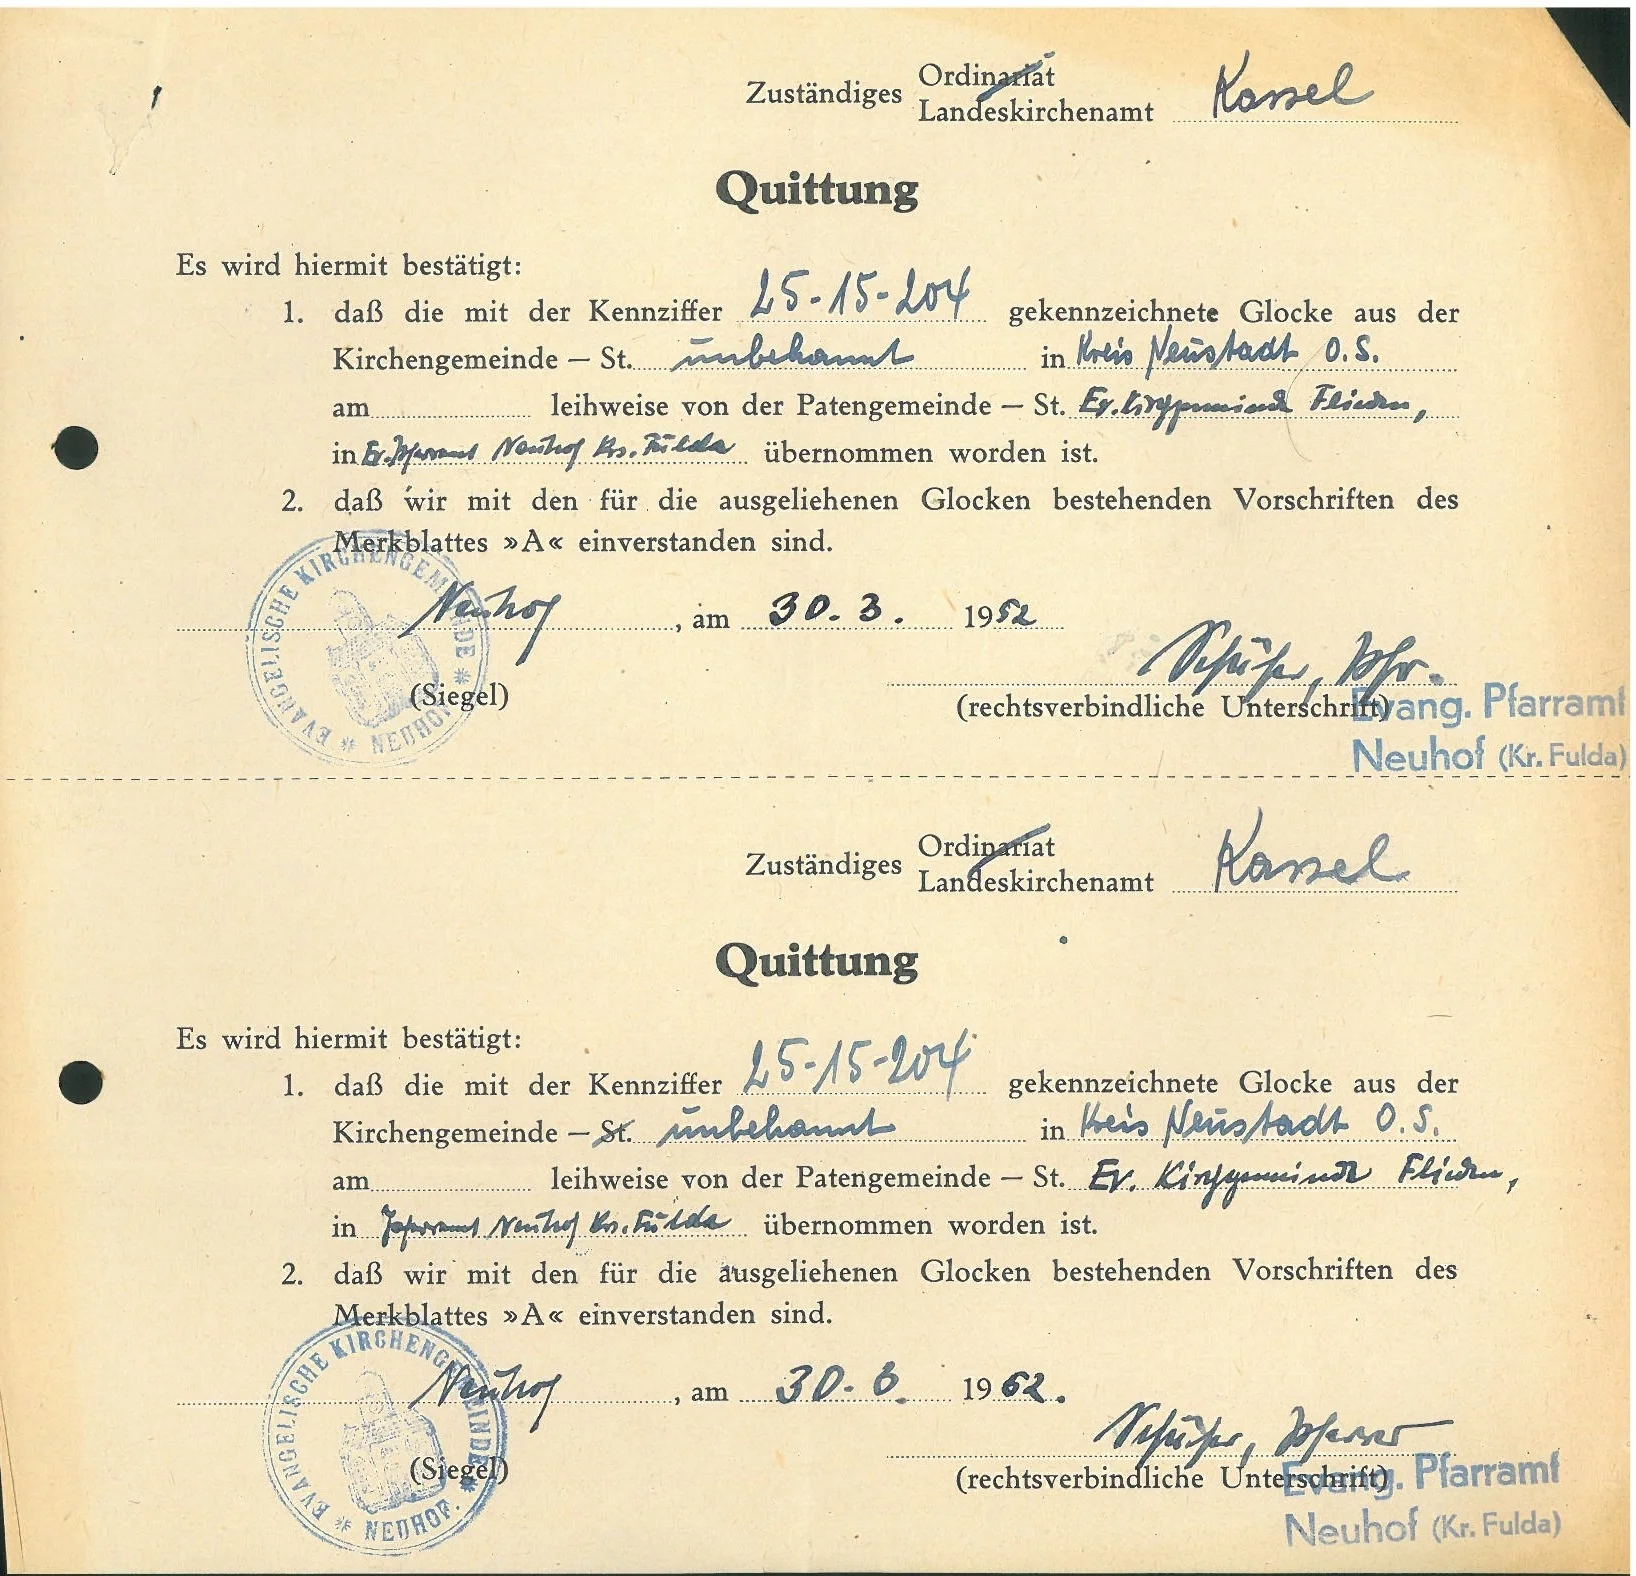 Zuständiges Ordinariat
Landeskirchenamt Kassel
Quittung
Es wird hiermit bestätigt:
1. daß die mit der Kennziffer 25-15-204 gekennzeichnete Glocke aus der
Kirchengemeinde – St. unbekannt in Kreis Neustadt O.S.
am leihweise von der Patengemeinde – St. Ev. Kirchgemeinde Flieden,
in Ev. Pfarramt Neuhof Krs. Fulda übernommen worden ist.
2. daß wir mit den für die ausgeliehenen Glocken bestehenden Vorschriften des
Merkblattes »A« einverstanden sind.
EVANGELISCHE KIRCHENGEMEINDE * NEUHOF. *
Neuhof, am 30. 3. 1952
Schäfer, Pfr.
(Siegel) (rechtsverbindliche Unterschrift)
Evang. Pfarramt
Neuhof (Kr. Fulda)
Zuständiges Ordinariat
Landeskirchenamt Kassel
Quittung
Es wird hiermit bestätigt:
1. daß die mit der Kennziffer 25-15-204 gekennzeichnete Glocke aus der
Kirchengemeinde – St. unbekannt in Kreis Neustadt O.S.
am leihweise von der Patengemeinde – St. Ev. Kirchgemeinde Flieden,
in Pfarramt Neuhof Krs. Fulda übernommen worden ist.
2. daß wir mit den für die ausgeliehenen Glocken bestehenden Vorschriften des
Merkblattes »A« einverstanden sind.
EVANGELISCHE KIRCHENGEMEINDE * NEUHOF. *
Neuhof, am 30. 3. 1952.
Schäfer, Pfarrer
(Siegel) (rechtsverbindliche Unterschrift)
Evang. Pfarramt
Neuhof (Kr. Fulda)